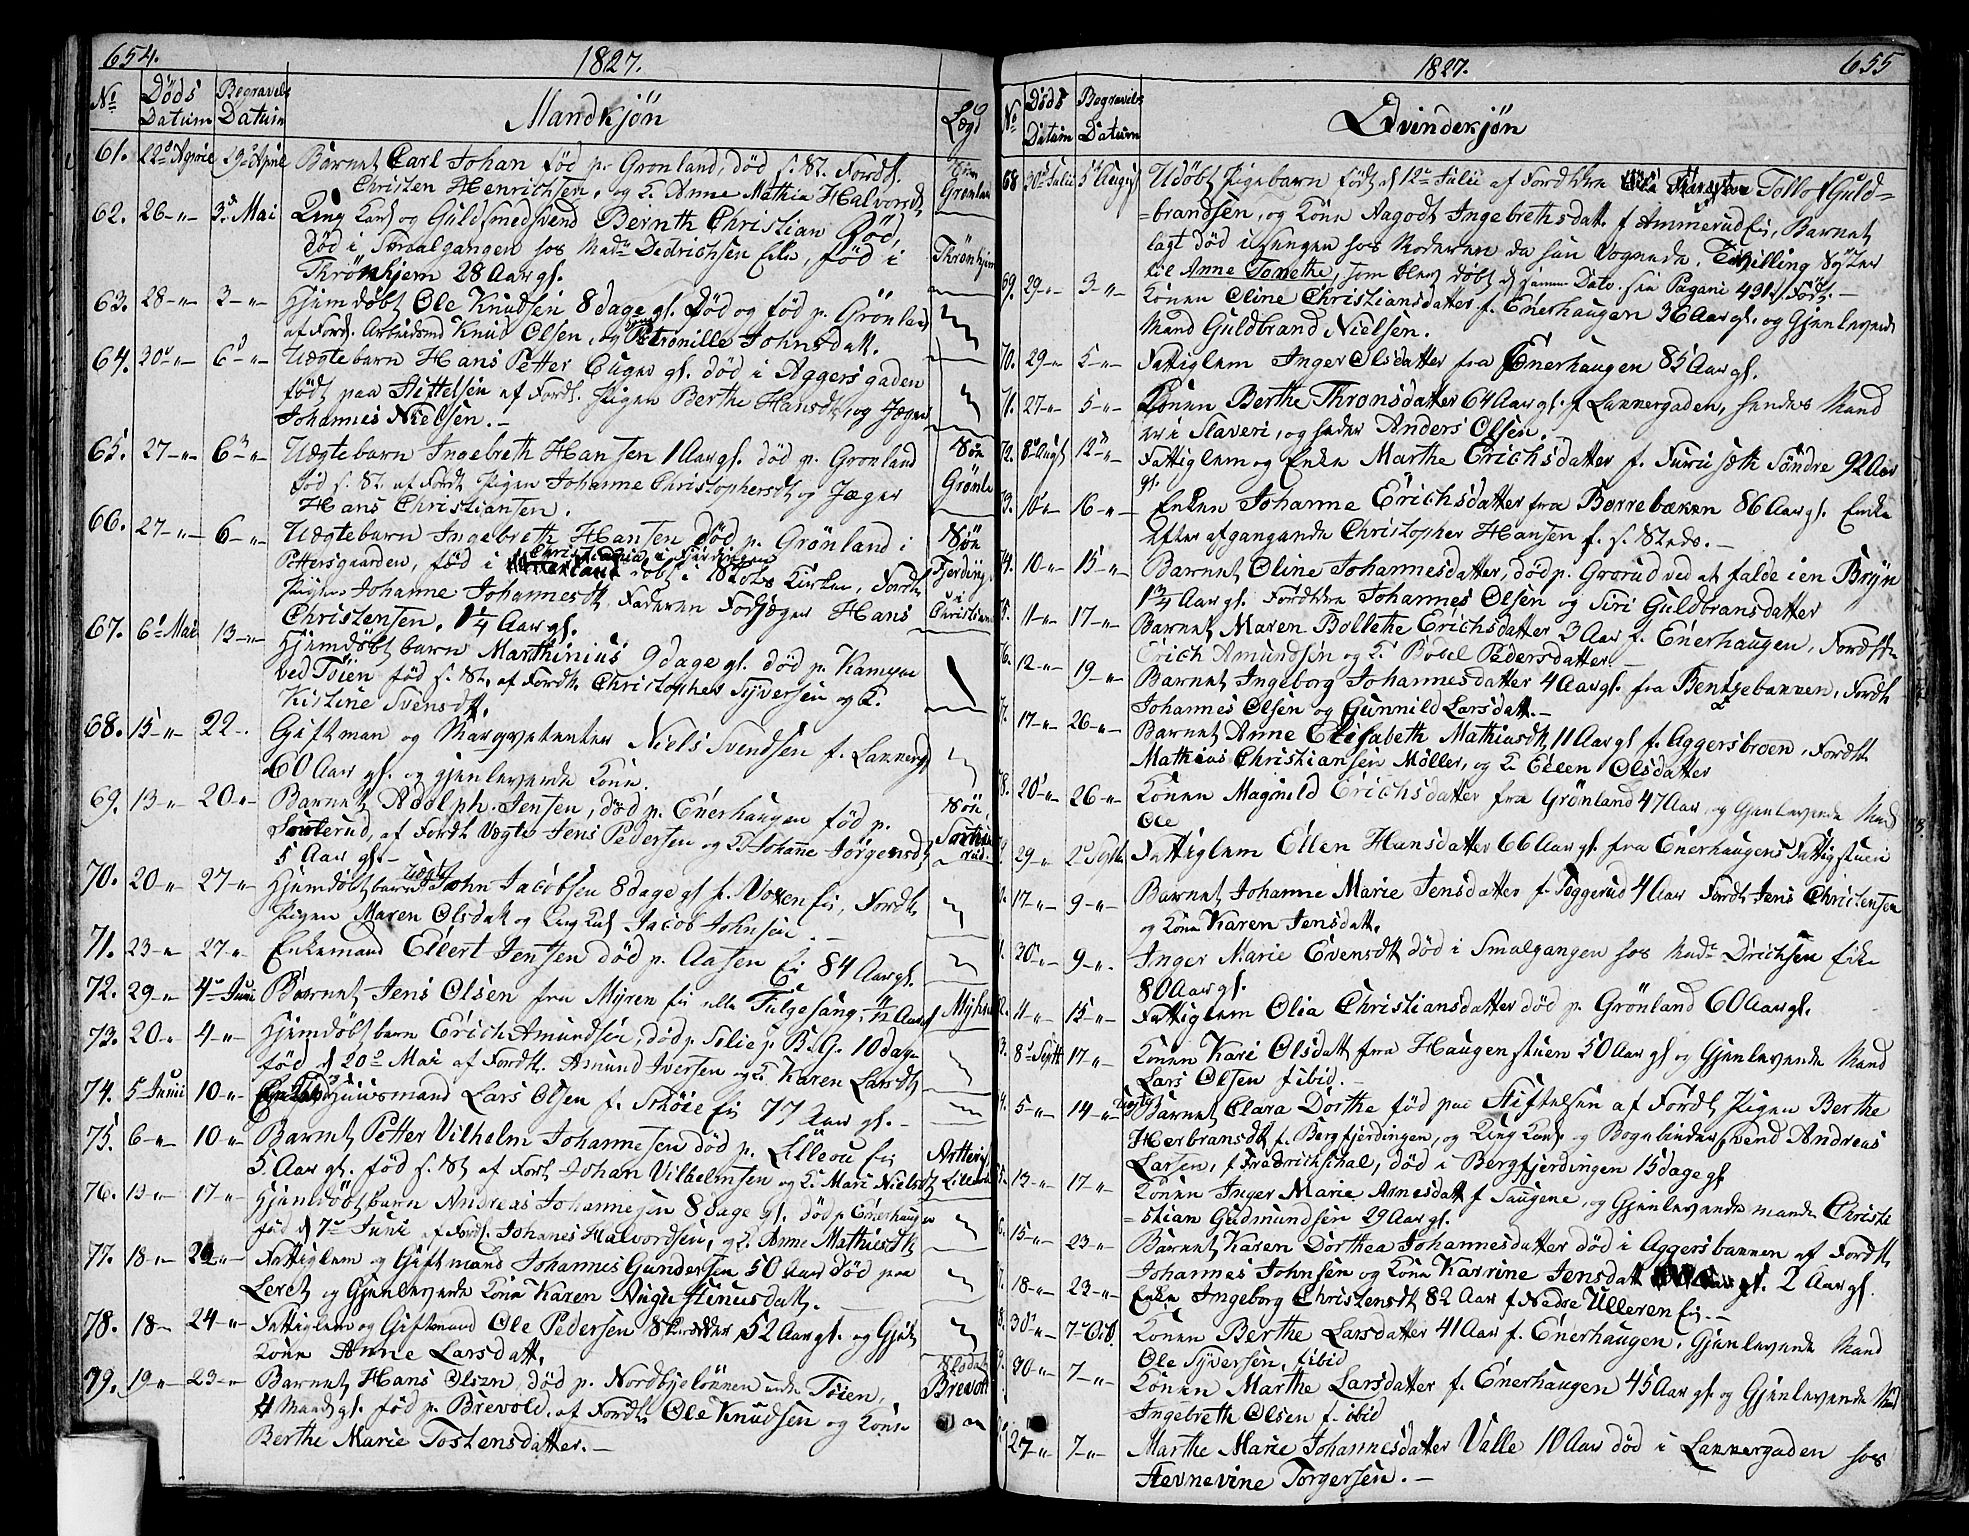 654. 1827.
No Døds Datum Begravels Datum Mandkjön Lægd
61. 22d Aprile 29d Aprile Barnet Carl Johan død p. Grönland, død s. St. Fordl.
Christen Henrichsen, og K. Anne Mathia Halvorsdt Grönland
62. 26-"- 3d Mai Ung Karl og Guldsmedsvend Bernth Christian Röd,
død i Smalgangen hos Mad. Didrichsen Enke, fød i
Thrönhjem 28 Aar gl. Thrönhjem
63. 28-"- 3-"- Hjemdøbt Ole Knudsen 8 dage gl. død og fød p. Grönland
af Ford. Arbeidsmd Knud Olsen, og Petronille Johnsdatt.
64. 30d-"- 6d-"- Uægtebarn Hans Petter gl. død i Aggersgaden
født paa Stiftelsen af Fordl. Pigen Berthe Hansdt, og Jæger
Johannes Nielsen.-
65. 27-"- 6-"- Uægtebarn Ingebreth Hansen 1 Aar gl. død p. Grönland
fød s. St. af Fordl. Pigen Johanne Christophersdt og Jæger
Hans Christiansen. Grönl.
66. 27-"- 6-"- Uægtebarn Ingebreth Hansen død p. Grönland i
Pettersgaarden, fød i Christiania i Fjerdingen døbt i Kirken, Fordl.
Pigen Johanne Johannesdt, Faderen Fodjæger Hans
Christensen, 1 1/4 Aar gl. Fjerding. i Christiania
67. 6d Mai 13-"- Hjemdøbt barn Marthinius 9 dage gl. død p. Kampen
ved Töien fød s. St. af Fordl. Christopher Syversen og K.
Kistine Svensdt.
68. 15-"- 22-. Giftman og Margvetenter Niels Svendsen f. Lakkerg.
60 Aar gl. og gjenlevende Kone.
69. 13-"- 20-"- Barnet Adolph Jensen, død p. Enerhaugen fød p.
af Fordl. Ægte Jens Pedersen og K. Johanne Jörgensdt
5 Aar gl.-
70. 20-"- 27-"- Hjemdøbt barn uægte John Jacobsen 8 dage gl. f. Voxen Ei, Fordl.
Pigen Maren Olsdatt og Ung Karl Jacob Johnsen.-
71. 23-"- 27-"- Enkemand Ellert Jensen død p. Aasen Ei 84 Aar gl.
72. 29-"- 4d Juni Barnet Jens Olsen fra Myren Ei elle Fulgesang, Aar gl
73. 20-"- 4-"- Hjemdøbt barn Erich Amundsen, død p. Solie p. B. G. 10 dage
fød d 20d Mai af Fordl. Amund Iversen og K. Karen Larsdt
74. 5 Junii 10-"- Huusmand Lars Olsen f. Schöie Ei 77 Aar gl.-
75. 6-"- 10-"- Barnet Petter Vilhelm Johannesen død p. Lilleou Ei
5 Aar gl. fød s. St af Forl. Johan Vilhelmsen og K. Mari Nielsdt
76. 13-"- 17-"- Hjemdöbt barn Andreas Johannesen 8 dage gl. død p. Enerhaugen
fød d 7d Juni af Fordl. Johanes Halvordsen, og K. Anne Mathisdt
77. 18-"- Fattiglem og Giftmand Johannes Gundersen 50 Aar død paa
Leret og Gjenlevende Kone Karen Augustinusdatt.
78. 18- 24-"- Fattiglem og Giftmand Ole Pedersen 52 Aar gl. og Gjl.
Kone Anne Larsdatt.
79. 19-"- 23-"- Barnet Hans Olsen død p. Nordbyelökken unde Töien,
4 Maaned gl. fød p. Brevold af Fordl. Ole Knudsen og Kone
Berthe Marie Tostensdatter.- Brevold
1827. 655
No Døds Datum Begravels Datum Qvindekjön
68 30d Julii 5d August Udøbt Pigebarn født d 12d Julii af Fordldre Tollof Guld=
=brandsen, og Kone Aagodt Ingebrethsdatt. f Ammerud Ei, Barnet
lagt død i Sengen hos Moderen da hun Vognede. Tvilling Syster
til Anne Tonethe, som blev døbt d samme Dato. see Pagani 431 Født.-
69. 29-"- 3-"- Konen Oline Christiansdatter f. Enerhaugen 36 Aar gl. og Gjenlevende
Mand Guldbrand Nielsen.
70. 29-"- 5-"- Fattiglem Inger Olsdatter fra Enerhaugen 85 Aar gl.
71. 27-"- 5-"- Konen Berthe Thronsdatter 64 Aar gl. f Lakkergaden, hendes Mand
er i Slaveri, og heder Anders Olsen.
72. 8d Augst 12-"- Fattiglem og Enke Marthe Erichsdatter f. Furusæth Söndre 92 Aar
gl.
73. 10-"- 16-"- Enken Johanne Erichsdatter fra Borrebæken 86 Aar gl. Enke
efter afgangende Christopher Hansen f. s. Steds.-
74. 10-"- 15-"- Barnet Oline Johannesdatter, død p. Grorud ved at falde i en Brÿn
1 3/4 Aar gl. Fordldre Johannes Olsen og Siri Guldbransdatter
75. 11-"- 17-"- Barnet Maren Bollethe Erichsdatter 3 Aar f. Enerhaugen, Fordldre
Erich Amundsen og K. Bodel Pedersdatter.-
76. 12-"- 19-"- Barnet Ingeborg Johannesdatter 4 Aar gl. fra Bentsebakken, Fordl
Johannes Olsen og Gunnild Larsdatt.-
77. 17-"- 26-"- Barnet Anne Elisabeth Mathiasdt 11 Aar gl f. Aggersbroen. Fordl
Mathias Christiansen Möller, og K Ellen Olsdatter
78. 20d-"- 26-"- Konen Magnild Erichsdatter fra Grönland 47 Aar, og Gjenlevende Mand
Ole
29-"- 2d Septbr Fattiglem Ellen Hansdatter 66 Aar gl. fra Enerhaugens Fattigstuen
17-"- 9-"- Barnet Johanne Marie Jensdatter f. Toggerud 4 Aar Fordl Jens Christensen
og Kone Karen Jensdatt.
30-"- 9-"-. Inger Marie Evensdt død i Smalgangen hos Mad. Drichsen Enke
80 Aar gl.
11-"- 15-"- Fattiglem Olia Christiansdatter død p. Grönland 60 Aar gl.
8d Septb 17-"- Konen Kari Olsdatt fra Haugenstuen 50 Aar gl og Gjenlevende Mand
Lars Olsen f ibid.-
5-"- 14-"- Uægte Barnet Clara Dorthe fød paa Stiftelsen af Fordl Pigen Berthe
Herbransdt f. Bergfjerdingen, og Ung Karl og Bogbindersvend Andreas
Larsen, f Fredrichshal, død i Bergfjerdingen 15 dage gl
13-"- 17-"- Konen Inger Marie Arnesdatt f Saugene, og Gjenlevende mand Christi
=stian Gudmundsen 29 Aar gl.
15-"- 23-"- Barnet Karen Dorthea Johannesdatter død i Aggersbakken af Fordl
Johannes Johnsen og Kone Karrine Jensdatt 2 Aar gl.
18-"- 23-"- Enke Ingeborg Christensdt 82 Aar f Nedre Ulleren Ei.-
30-"- 7d Octb. Konen Berthe Larsdatter 41 Aar f. Enerhaugen, Gjenlevende Mand
Ole Syversen, f ibid
30-"- 7-"- Konen Marthe Larsdatter f. Enerhaugen 45 Aar gl og Gjenlevende Md
Ingebreth Olsen f. ibid
27-"- 7-"- Marthe Marie Johannesdatter Valle 10 Aar død i Lakkergaden hos
Stevnevine Torgersen.-